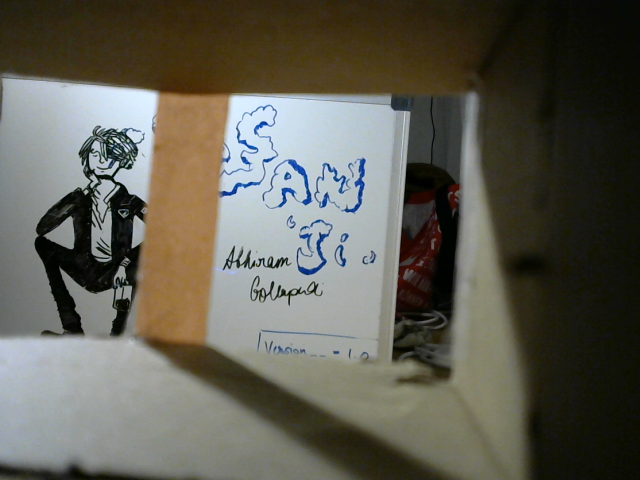 SAN
"Ji"
Abhiram
Gollapudi
Version -- = 1.0